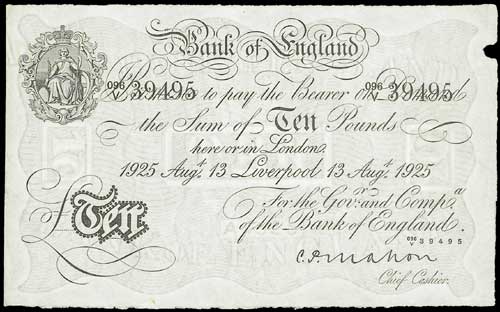 Bank of England
096/V 39495 096/V 39495
I Promise to pay the Bearer on Demand
the Sum of Ten Pounds
here or in London.
1925 Augt. 13 Liverpool 13 Augt. 1925
For the Govr. and Compa.
of the Bank of England.
096/V 39495
£Ten
C.P. Mahon
Chief Cashier.